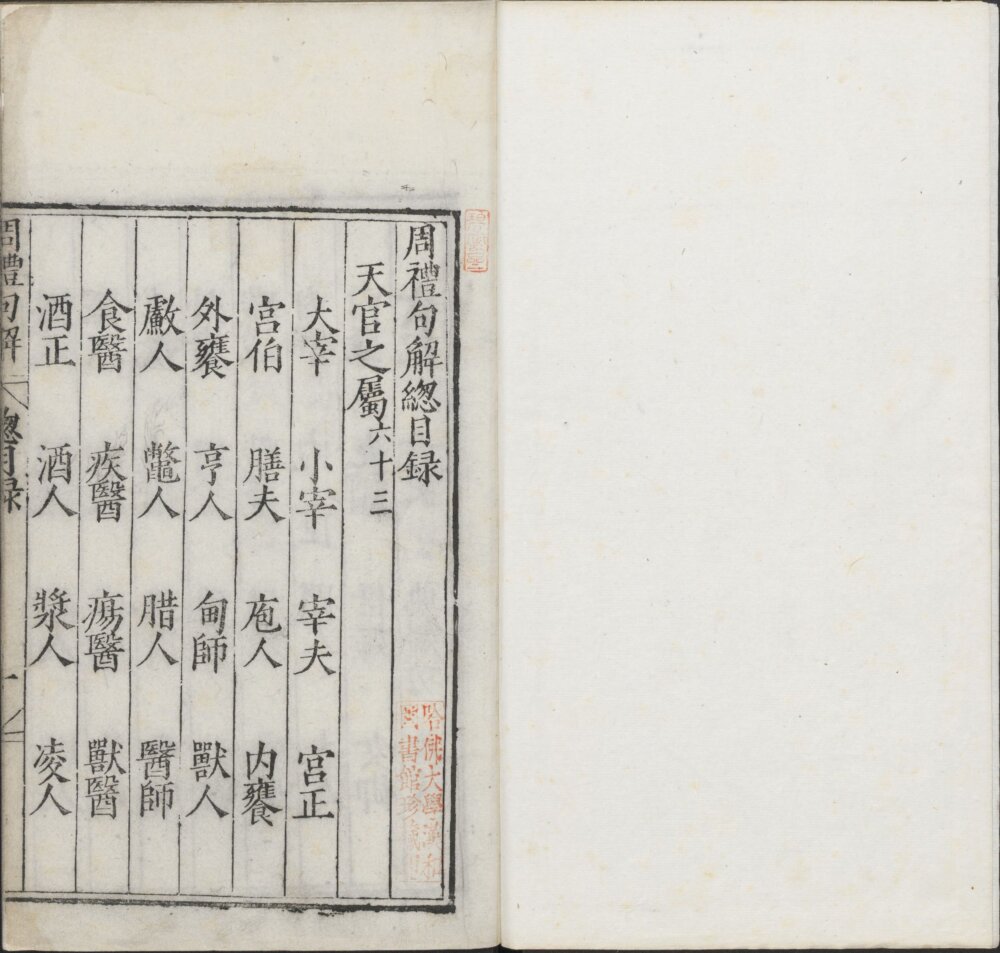 周禮句解緫目録
天官之屬六十三
大宰 小宰 宰夫 宫正
宫伯 膳夫 庖人 内饔
外饔 亨人 甸師 獸人
䱷人 鼈人 腊人 醫師
食醫 疾醫 瘍醫 獸醫
酒正 酒人 漿人 凌人
周禮句解 緫目録 一
哈佛大學漢和
圖書館珍藏印